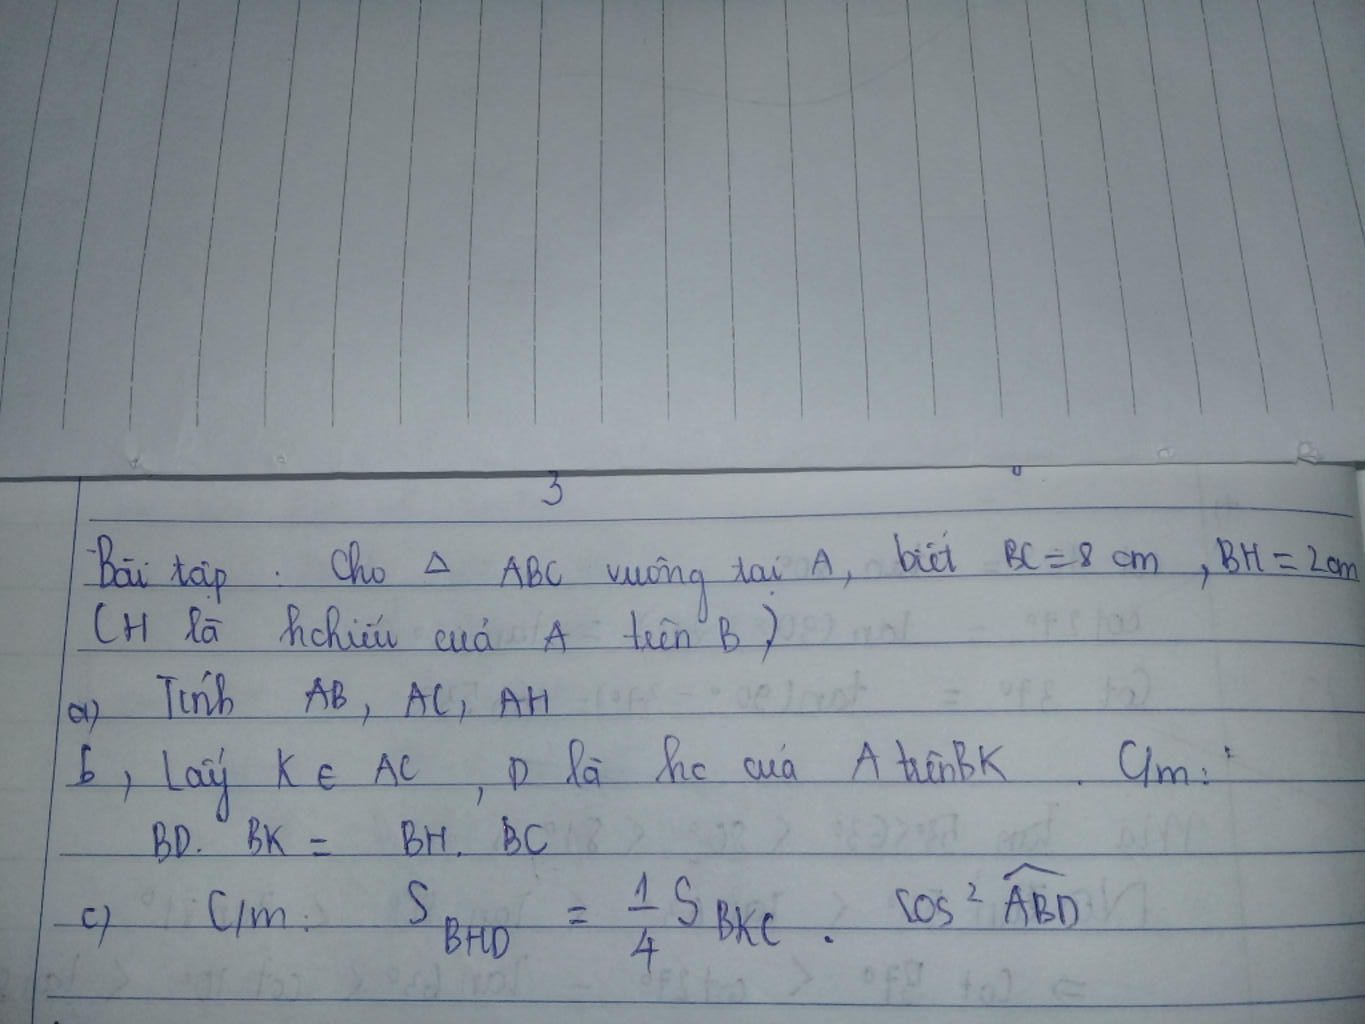 3
Bài tập. Cho Δ ABC vuông tại A, biết BC = 8 cm, BH = 2cm
(H là hchiếu của A trên B)
a) Tính AB, AC, AH
b, Lấy K ∈ AC, D là hc của A trên BK. C/m:
BD. BK = BH. BC
c) C/m: S_BHD = 1/4 S_BKC . cos² ABD̂